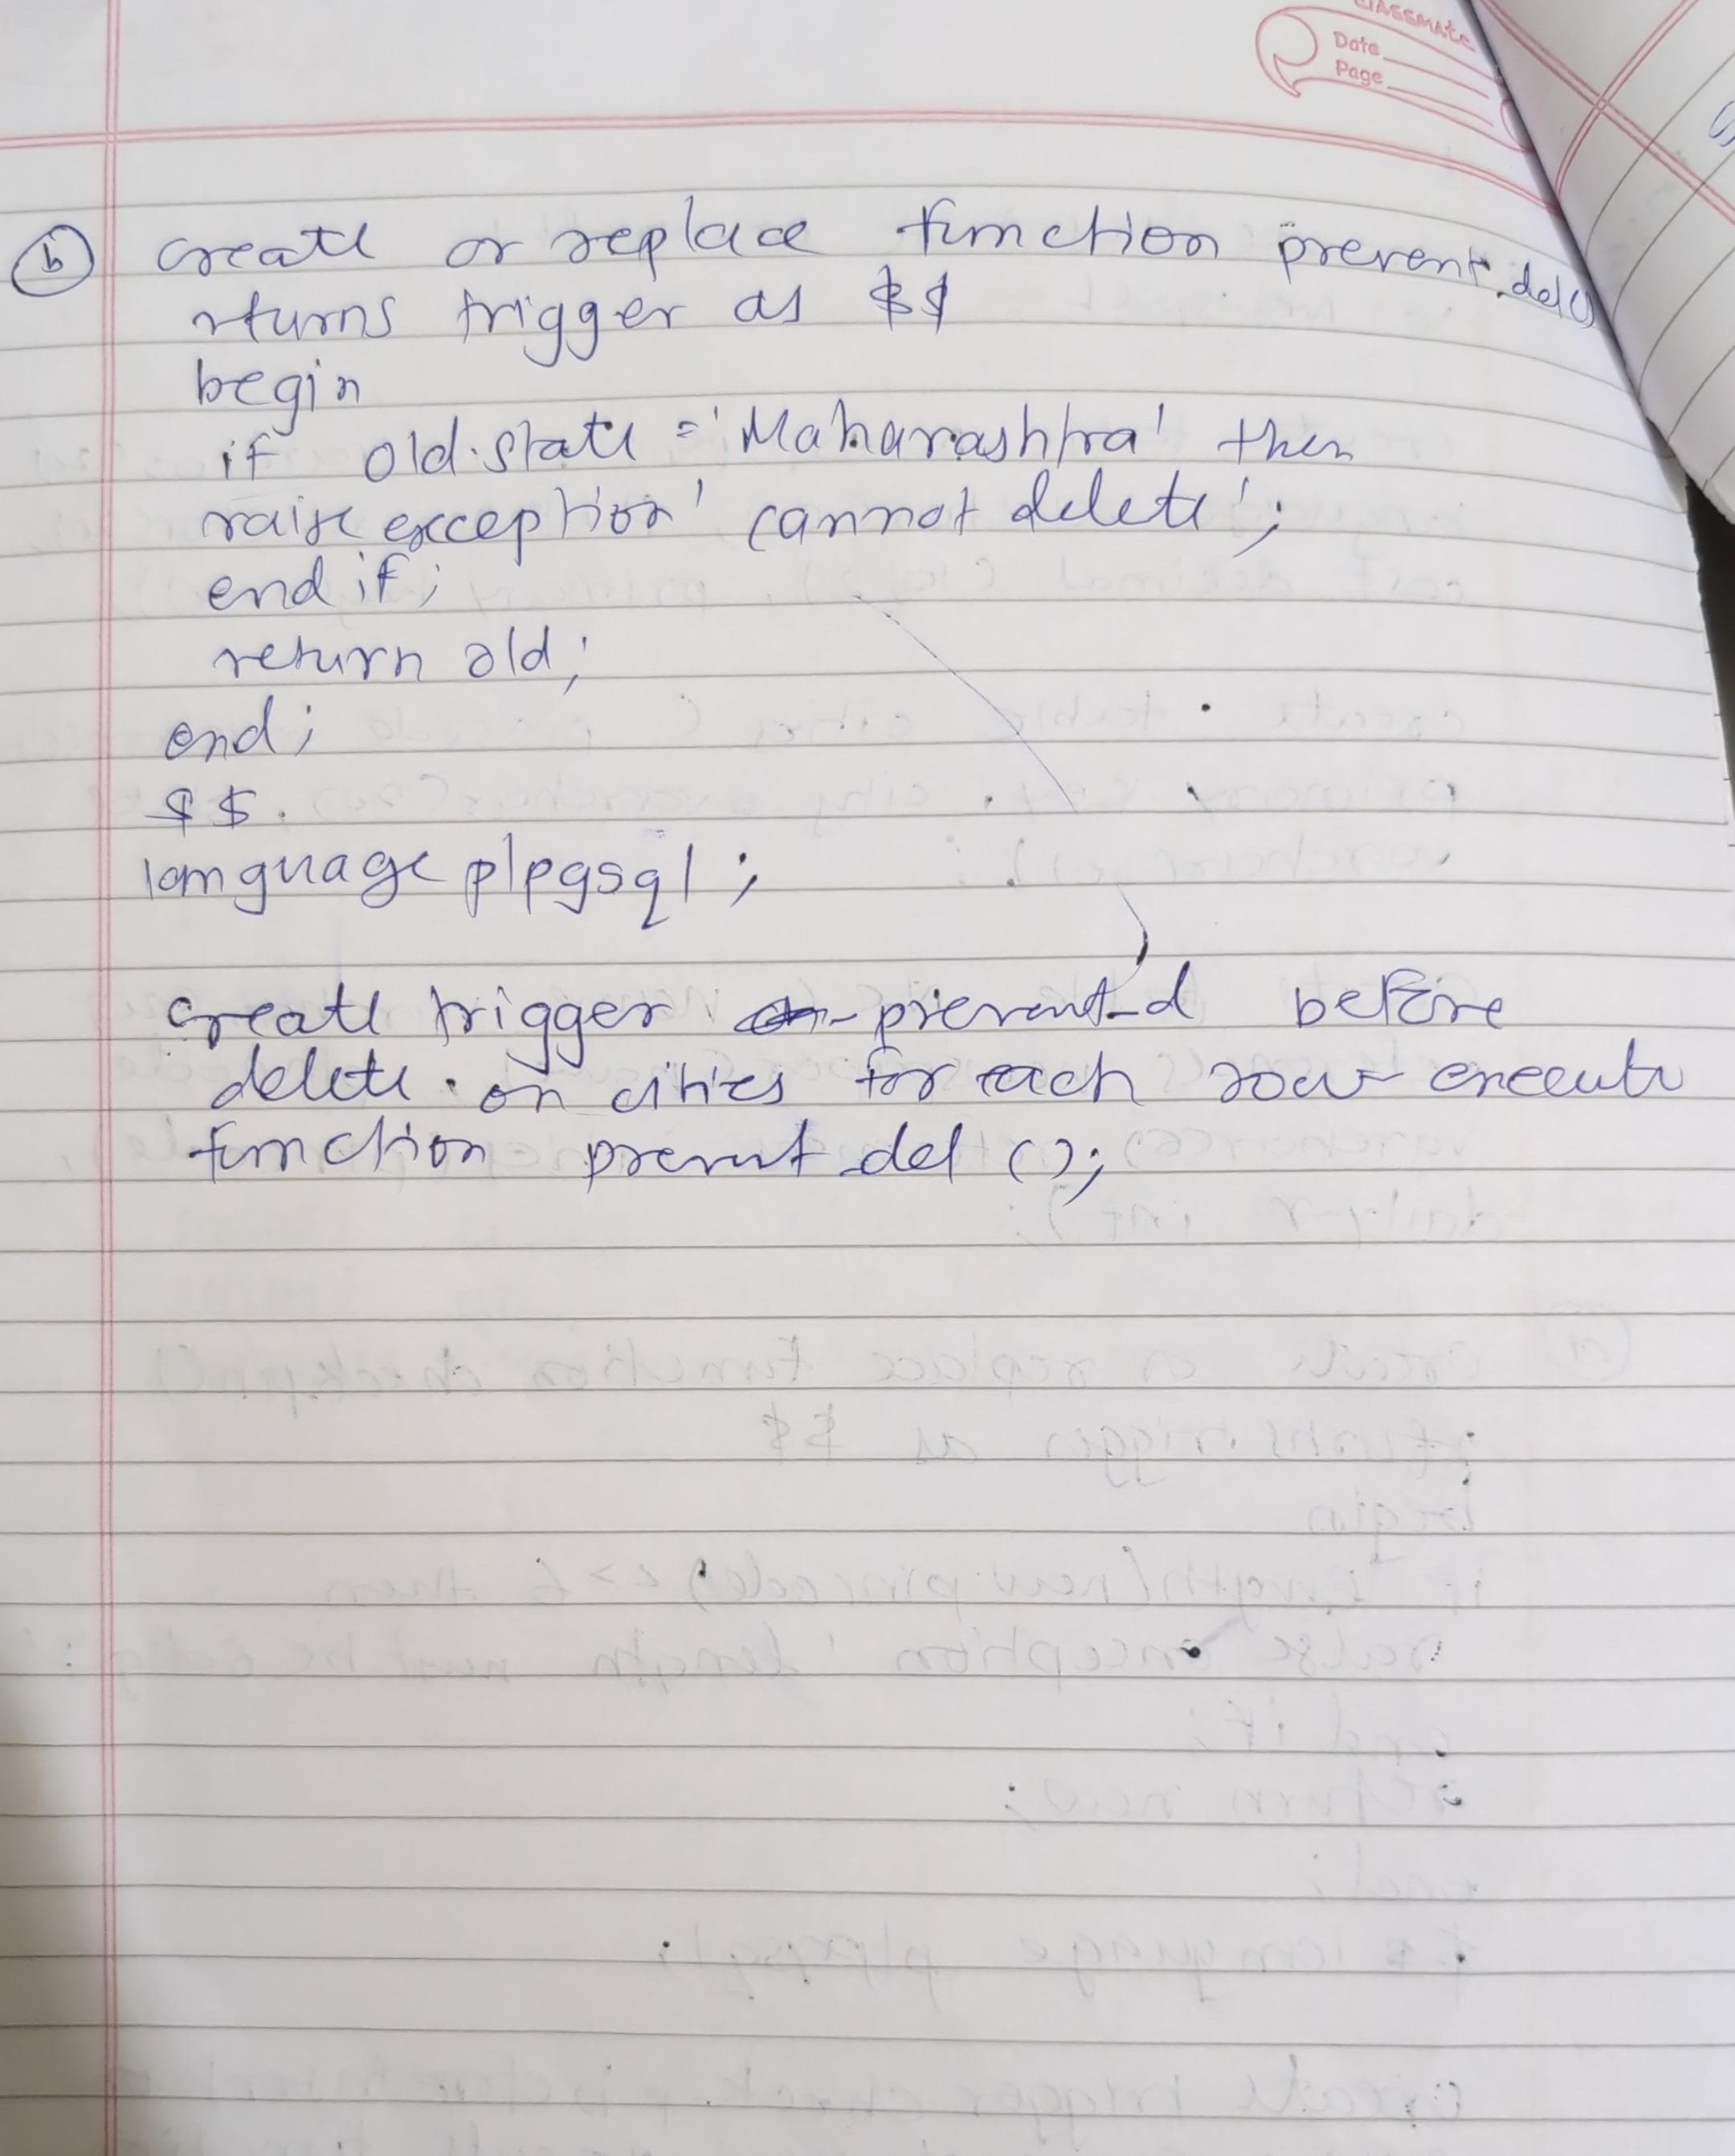 classmate
Date
Page
b create or replace function prevent_del()
returns trigger as $$
begin
if old.state = 'Maharashtra' then
raise exception 'cannot delete';
end if;
return old;
end;
$$
language plpgsql;
create trigger prevent_d before
delete on cities for each row execute
function prevent_del ();